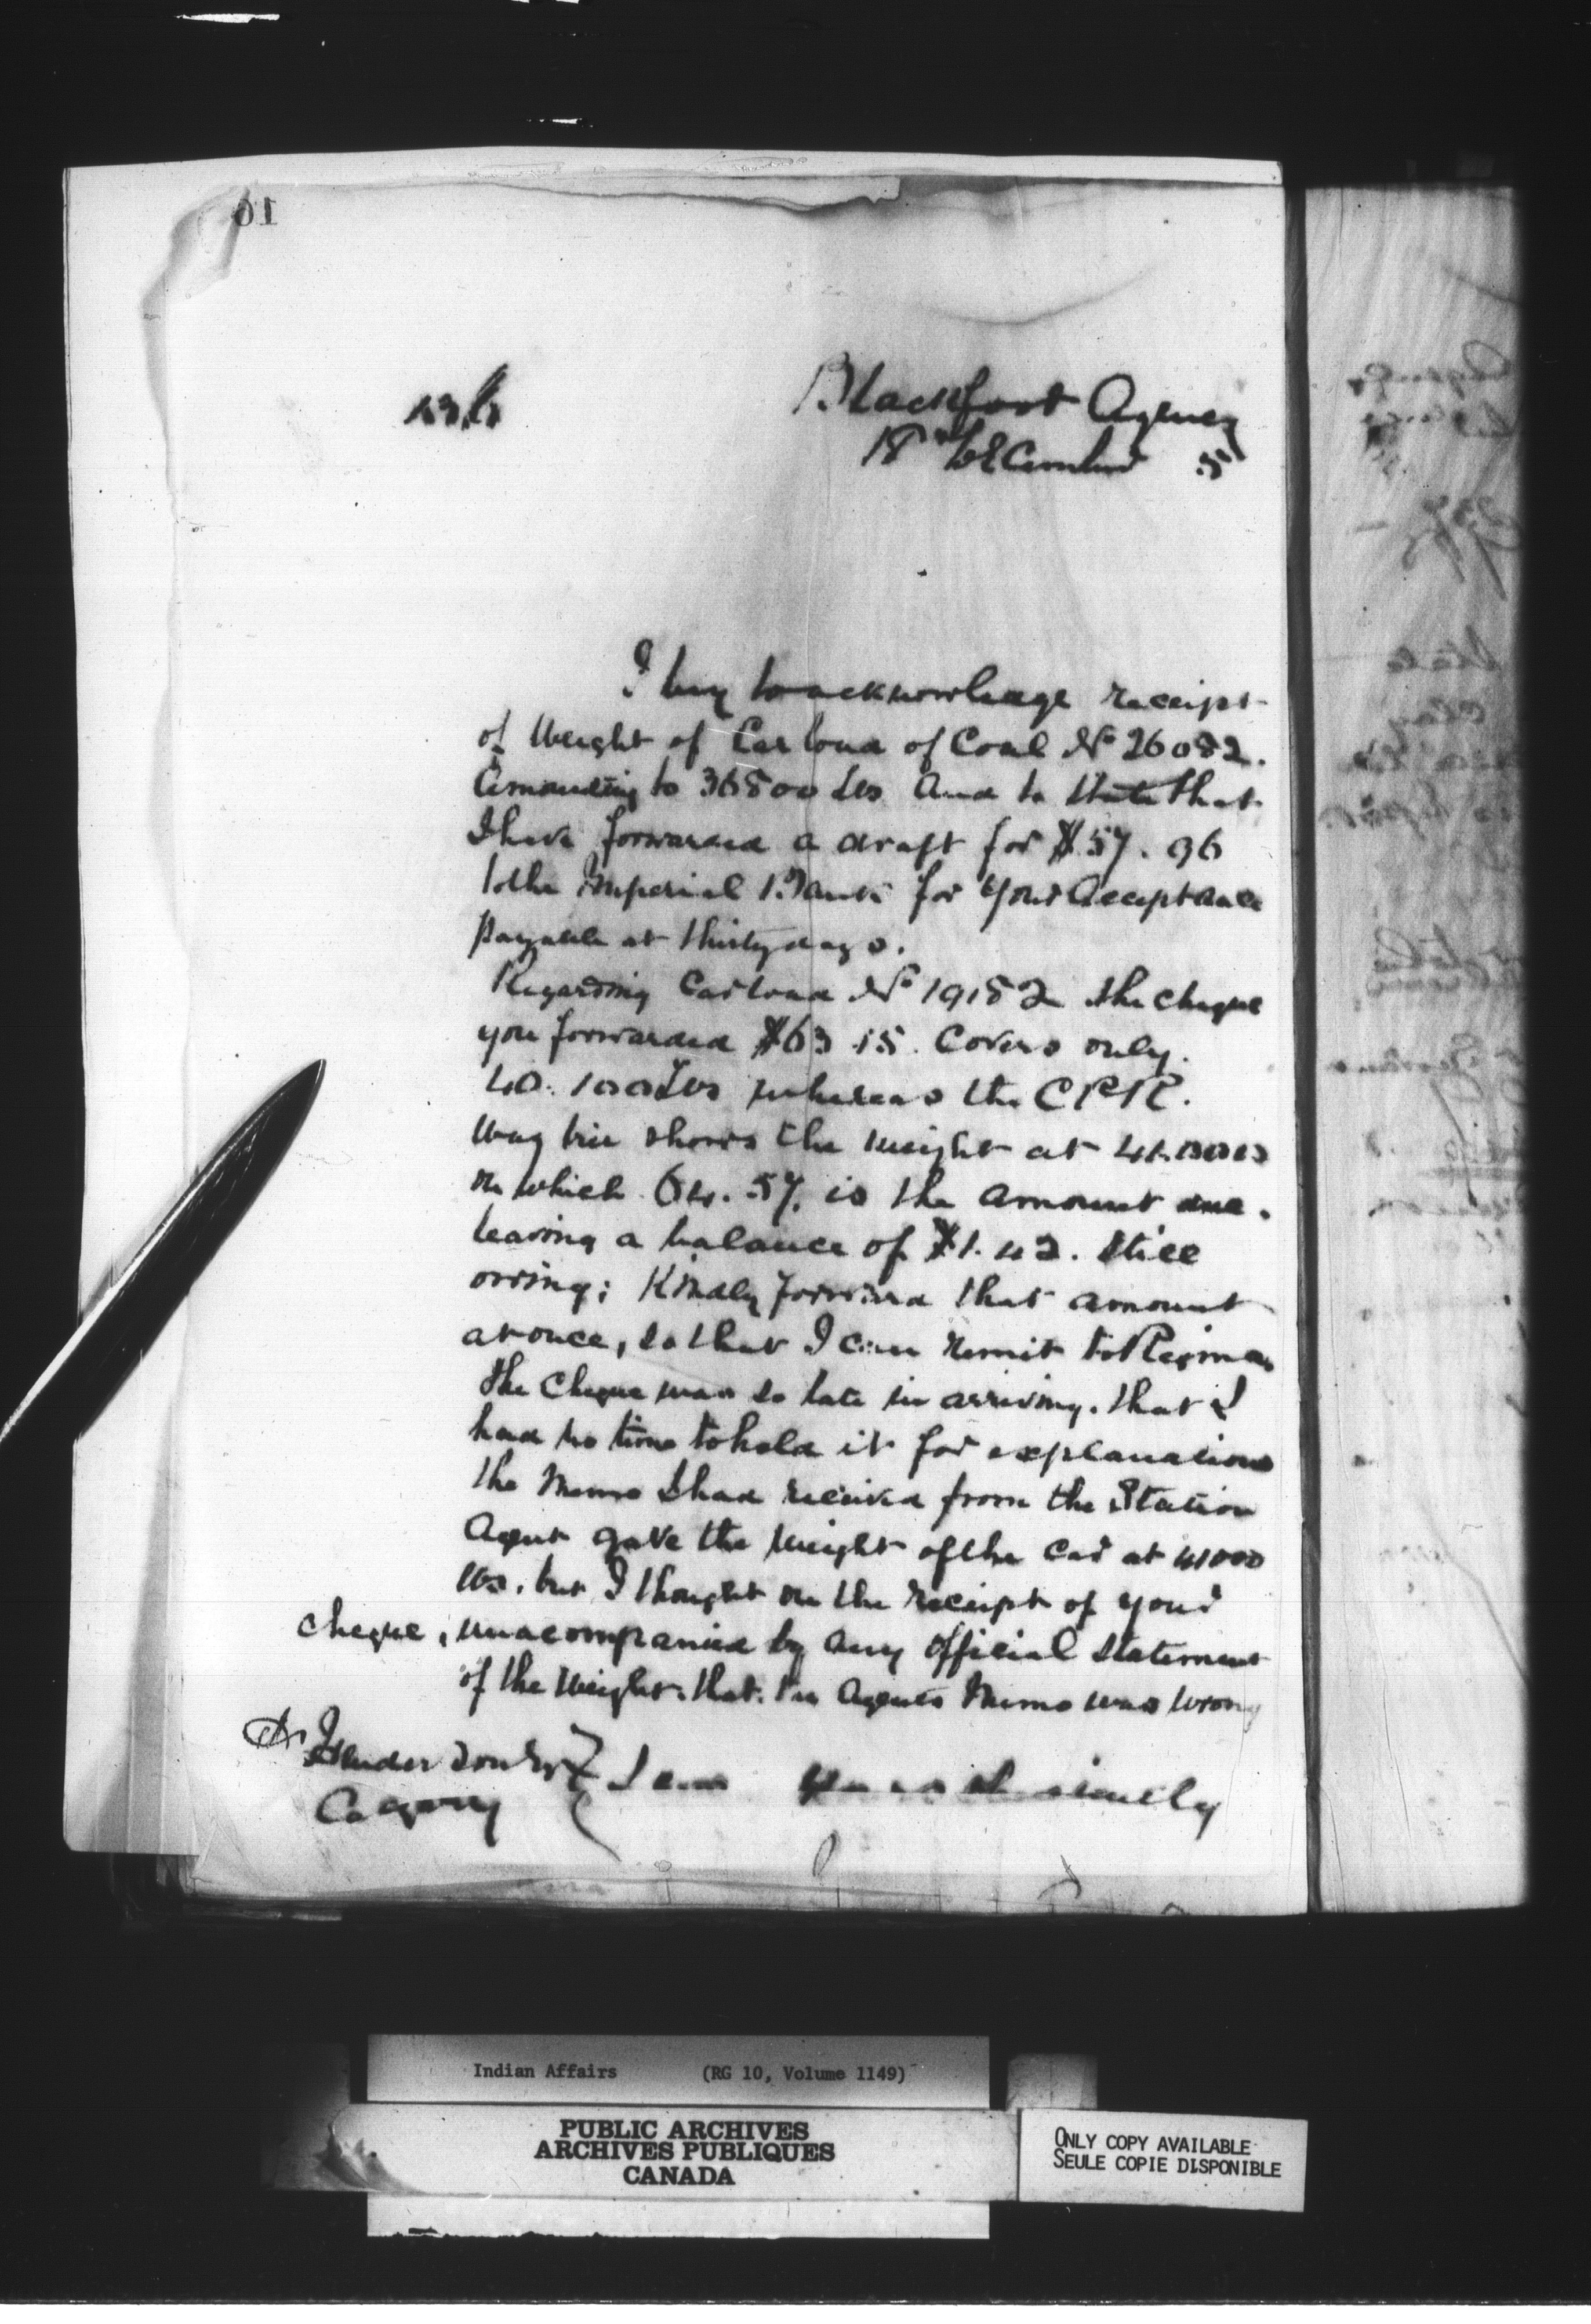 Blackfoot Agency
18th December
I beg to acknowledge receipt
of Weight of Carload of Coal No 26082.
Amounting to 36800 lbs and to State that
I have forwarded a draft for $57.96
to the Imperial Bank for your Acceptance
payable at thirty days.
Regarding Carload No 19182 the cheque
you forwarded $63.15. Covers only.
40.100 lbs whereas the CPR.
Way bill shows the weight at 41.000
on which 64.57. is the amount due.
leaving a balance of $1.42. Still
owing; Kindly forward that amount
at once, so that I can remit to Regina
the cheque was so late in arriving. that I
had no time to hold it for explanation
the Memo I had received from the Station
Agent gave the weight of the Car at 41000
lbs. but I thought on the receipt of your
cheque, unacompanied by any official Statement
of the Weight. that the Agents Memo was wrong
Henderson Esq I am yours
Calgary
Indian Affairs (RG 10, Volume 1149)
PUBLIC ARCHIVES
ARCHIVES PUBLIQUES
CANADA
ONLY COPY AVAILABLE
SEULE COPIE DISPONIBLE